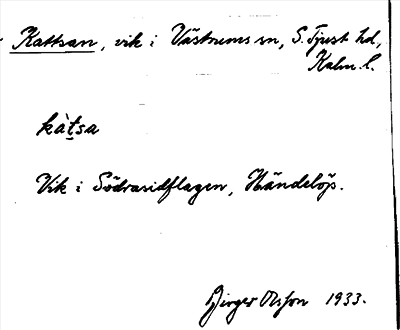 Kattsan, vik i Västrums sn, S. Tjust hd,
Kalm. l.
kàtsa
Vik i Södrasidflagen, Händelöp.
Birger Olsson 1933.